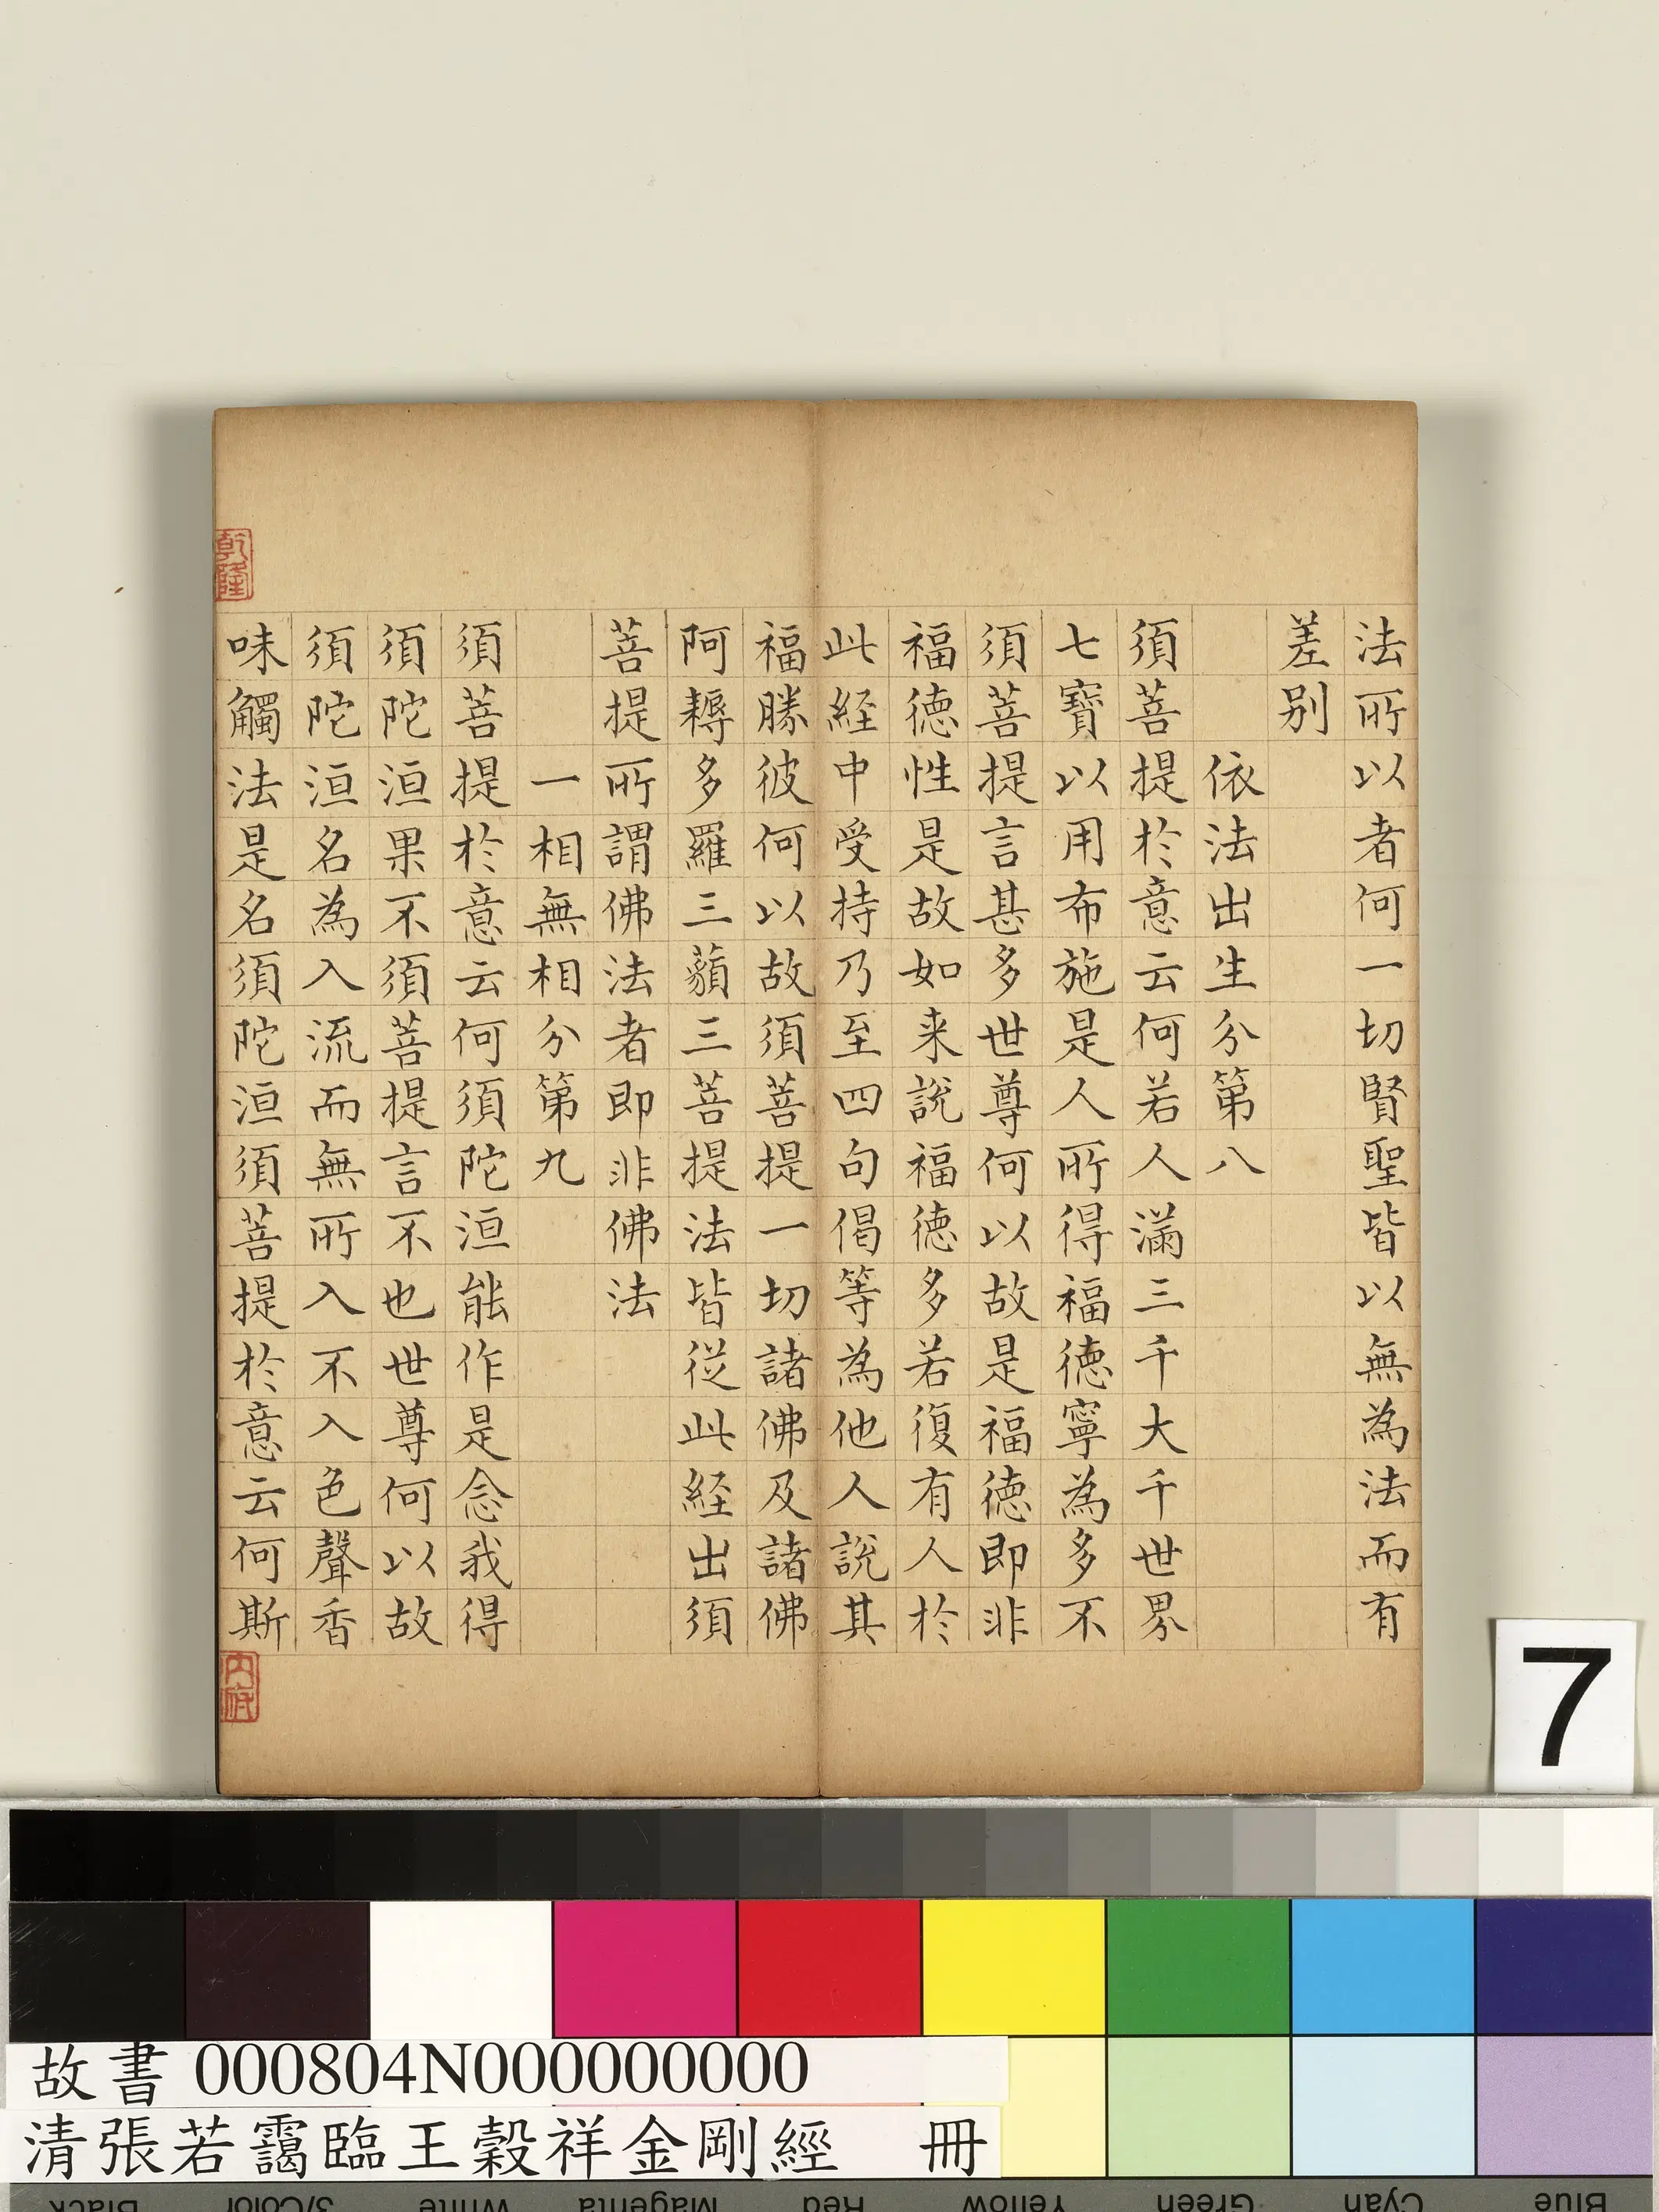 法所以者何一切賢聖皆以無為法而有
差別
依法出生分第八
須菩提於意云何若人滿三千大千世界
七寶以用布施是人所得福德寧為多不
須菩提言甚多世尊何以故是福德即非
福德性是故如来說福德多若復有人於
此経中受持乃至四句偈等為他人說其
福勝彼何以故須菩提一切諸佛及諸佛
阿耨多羅三藐三菩提法皆從此経出須
菩提所謂佛法者即非佛法
一相無相分第九
須菩提於意云何須陀洹能作是念我得
須陀洹果不須菩提言不也世尊何以故
須陀洹名為入流而無所入不入色聲香
味觸法是名須陀洹須菩提於意云何斯
乾隆
內府
7
故書 000804N000000000
清張若靄臨王穀祥金剛經 冊
Black 3/Color White Magenta Red Yellow Green Cyan Blue